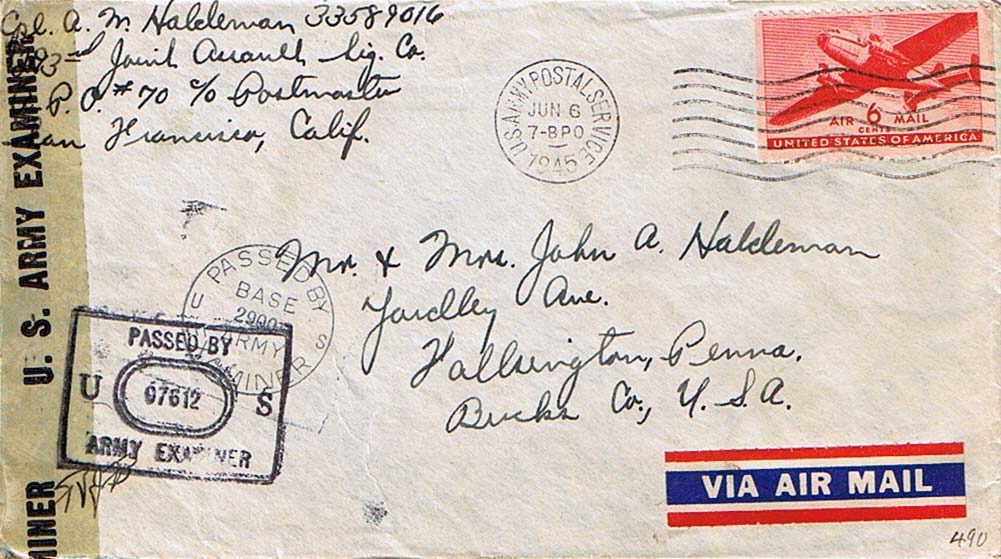 A. W. Haldeman 33589016
93rd Joint Assault Sig. Co.
P. O. # 70 c/o Postmaster
San Francisco, Calif.
U.S. ARMY POSTAL SERVICE
JUN 6
7-BPO
1945
AIR 6 MAIL
CENTS
UNITED STATES OF AMERICA
Mr. & Mrs. John A. Haldeman
Yardley Ave.
Fallsington, Penna.
Bucks Co., U.S.A.
PASSED BY
BASE
2900
U S
ARMY
EXAMINER
PASSED BY
U 07612 S
ARMY EXAMINER
U. S. ARMY EXAMINER
MINER
VIA AIR MAIL
490